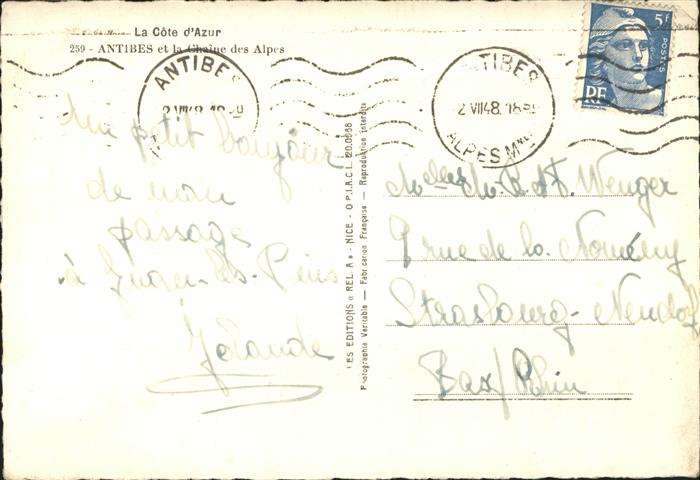 La Côte d'Azur
259 - ANTIBES et la Chaîne des Alpes
ANTIBES
2 VII 48
ANTIBES
2 VII 48 18
ALPES Mmes
5F
POSTES
RF
Un petit bonjour
de mon
passage
à Juan-les-Pins
Yolande
LES EDITIONS « REL A » - NICE - O.P.I.A.C.L.
Photographie Véritable — Fabrication Française — Reproduction interdite
Wenger
9 rue de la
Strasbourg-
Bas/Rhin